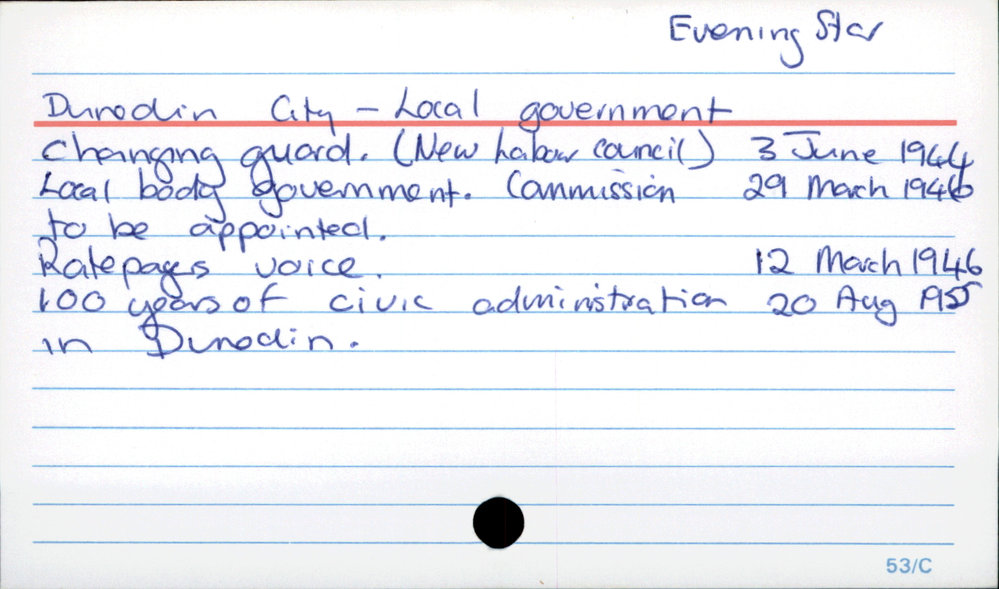 Evening Star
Dunedin City - Local government
Changing guard. (New Labour Council) 3 June 1944
Local body government. Commission 29 March 1946
to be appointed.
Ratepayers voice. 12 March 1946
100 years of civic administration 20 Aug 1955
in Dunedin.
53/C